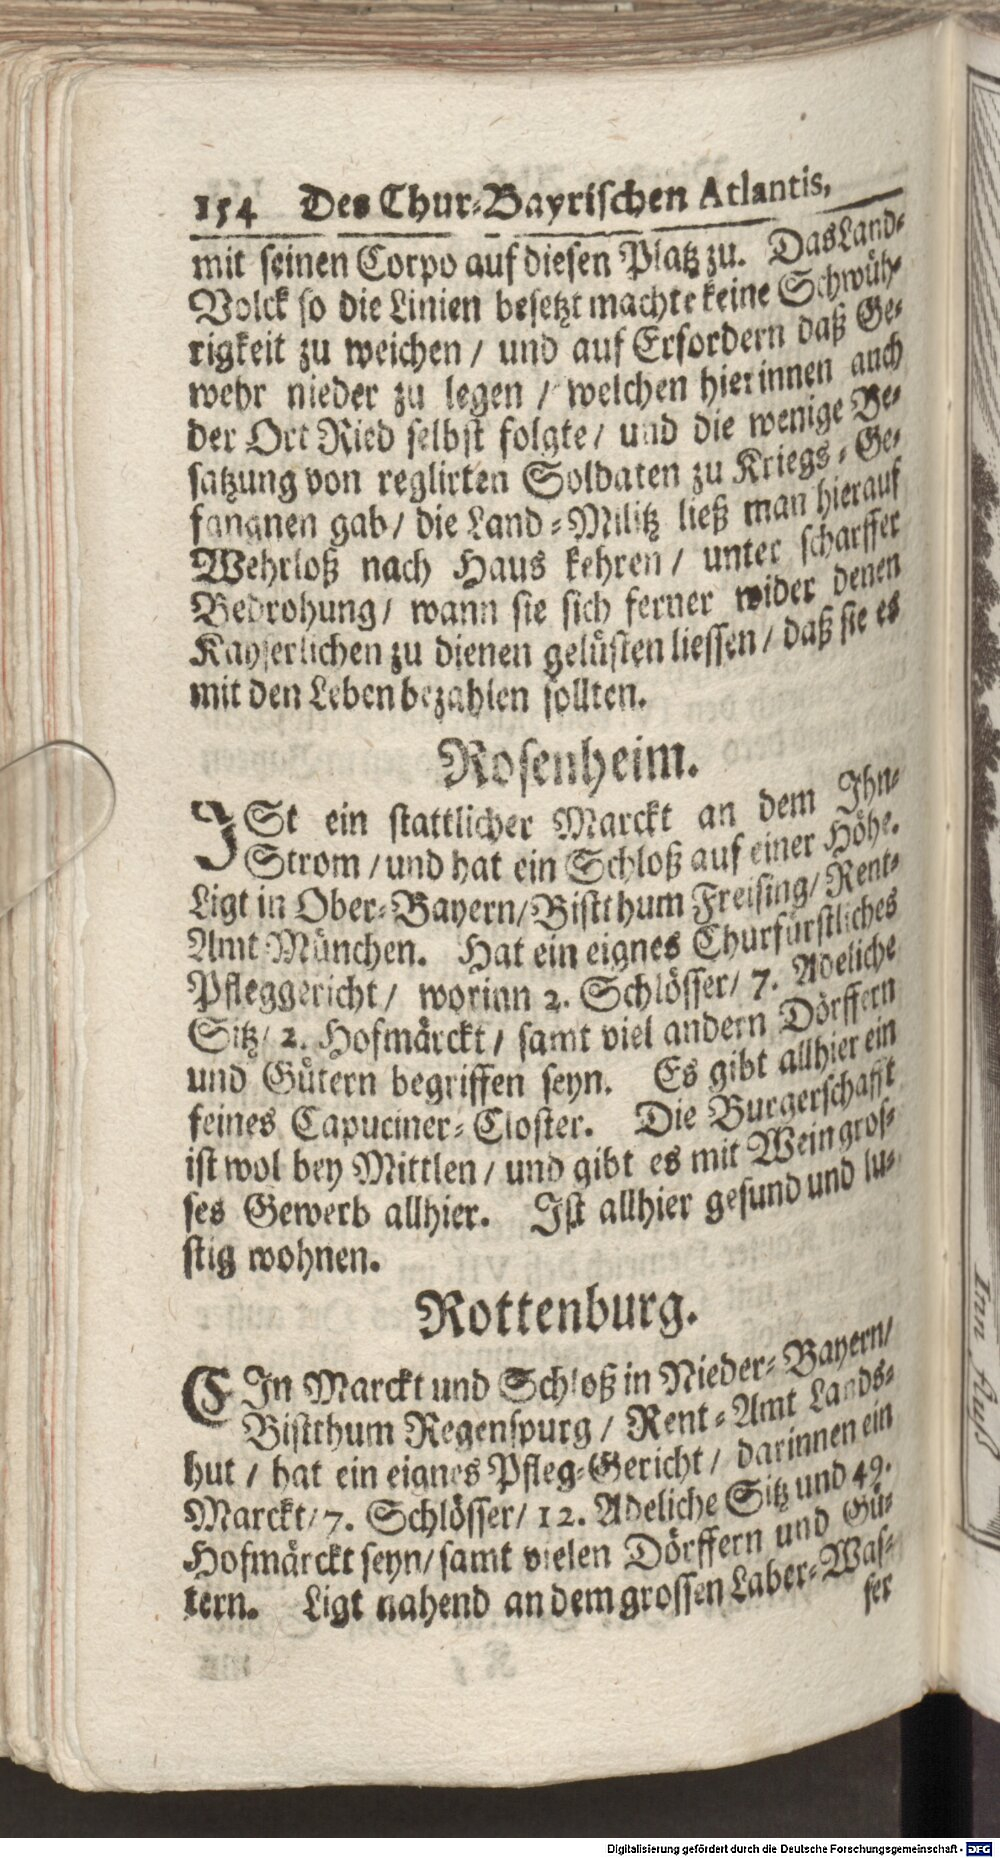 154 Des Chur-Bayrischen Atlantis,
mit seinen Corpo auf diesen Platz zu. Das Land-
Volck so die Linien besetzt machte keine Schwüh-
rigkeit zu weichen / und auf Erfordern daß Ge-
wehr nieder zu legen / welchen hierinnen auch
der Ort Ried selbst folgte / und die wenige Be-
satzung von reglirten Soldaten zu Kriegs-Ge-
fangnen gab / die Land-Militz ließ man hierauf
Wehrloß nach Haus kehren / unter scharffer
Bedrohung / wann sie sich ferner wider denen
Kayserlichen zu dienen gelüsten liessen / daß sie es
mit den Leben bezahlen sollten.
Rosenheim.
ISt ein stattlicher Marckt an dem Ihn-
Strom / und hat ein Schloß auf einer Höhe.
Ligt in Ober-Bayern / Bistthum Freising / Rent-
Amt München. Hat ein eignes Churfürstliches
Pfleggericht / worinn 2. Schlösser / 7. Adeliche
Sitz / 2. Hofmärckt / samt viel andern Dörffern
und Gütern begriffen seyn. Es gibt allhier ein
feines Capuciner-Closter. Die Burgerschafft
ist wol bey Mittlen / und gibt es mit Wein gros-
ses Gewerb allhier. Ist allhier gesund und lu-
stig wohnen.
Rottenburg.
EIn Marckt und Schloß in Nieder-Bayern /
Bistthum Regenspurg / Rent-Amt Lands-
hut / hat ein eignes Pfleg-Gericht / darinnen ein
Marckt / 7. Schlösser / 12. Adeliche Sitz und 49.
Hofmärckt seyn / samt vielen Dörffern und Gü-
tern. Ligt nahend an dem grossen Laber-Was-
ser
Inn fluß
Digitalisierung gefördert durch die Deutsche Forschungsgemeinschaft - DFG